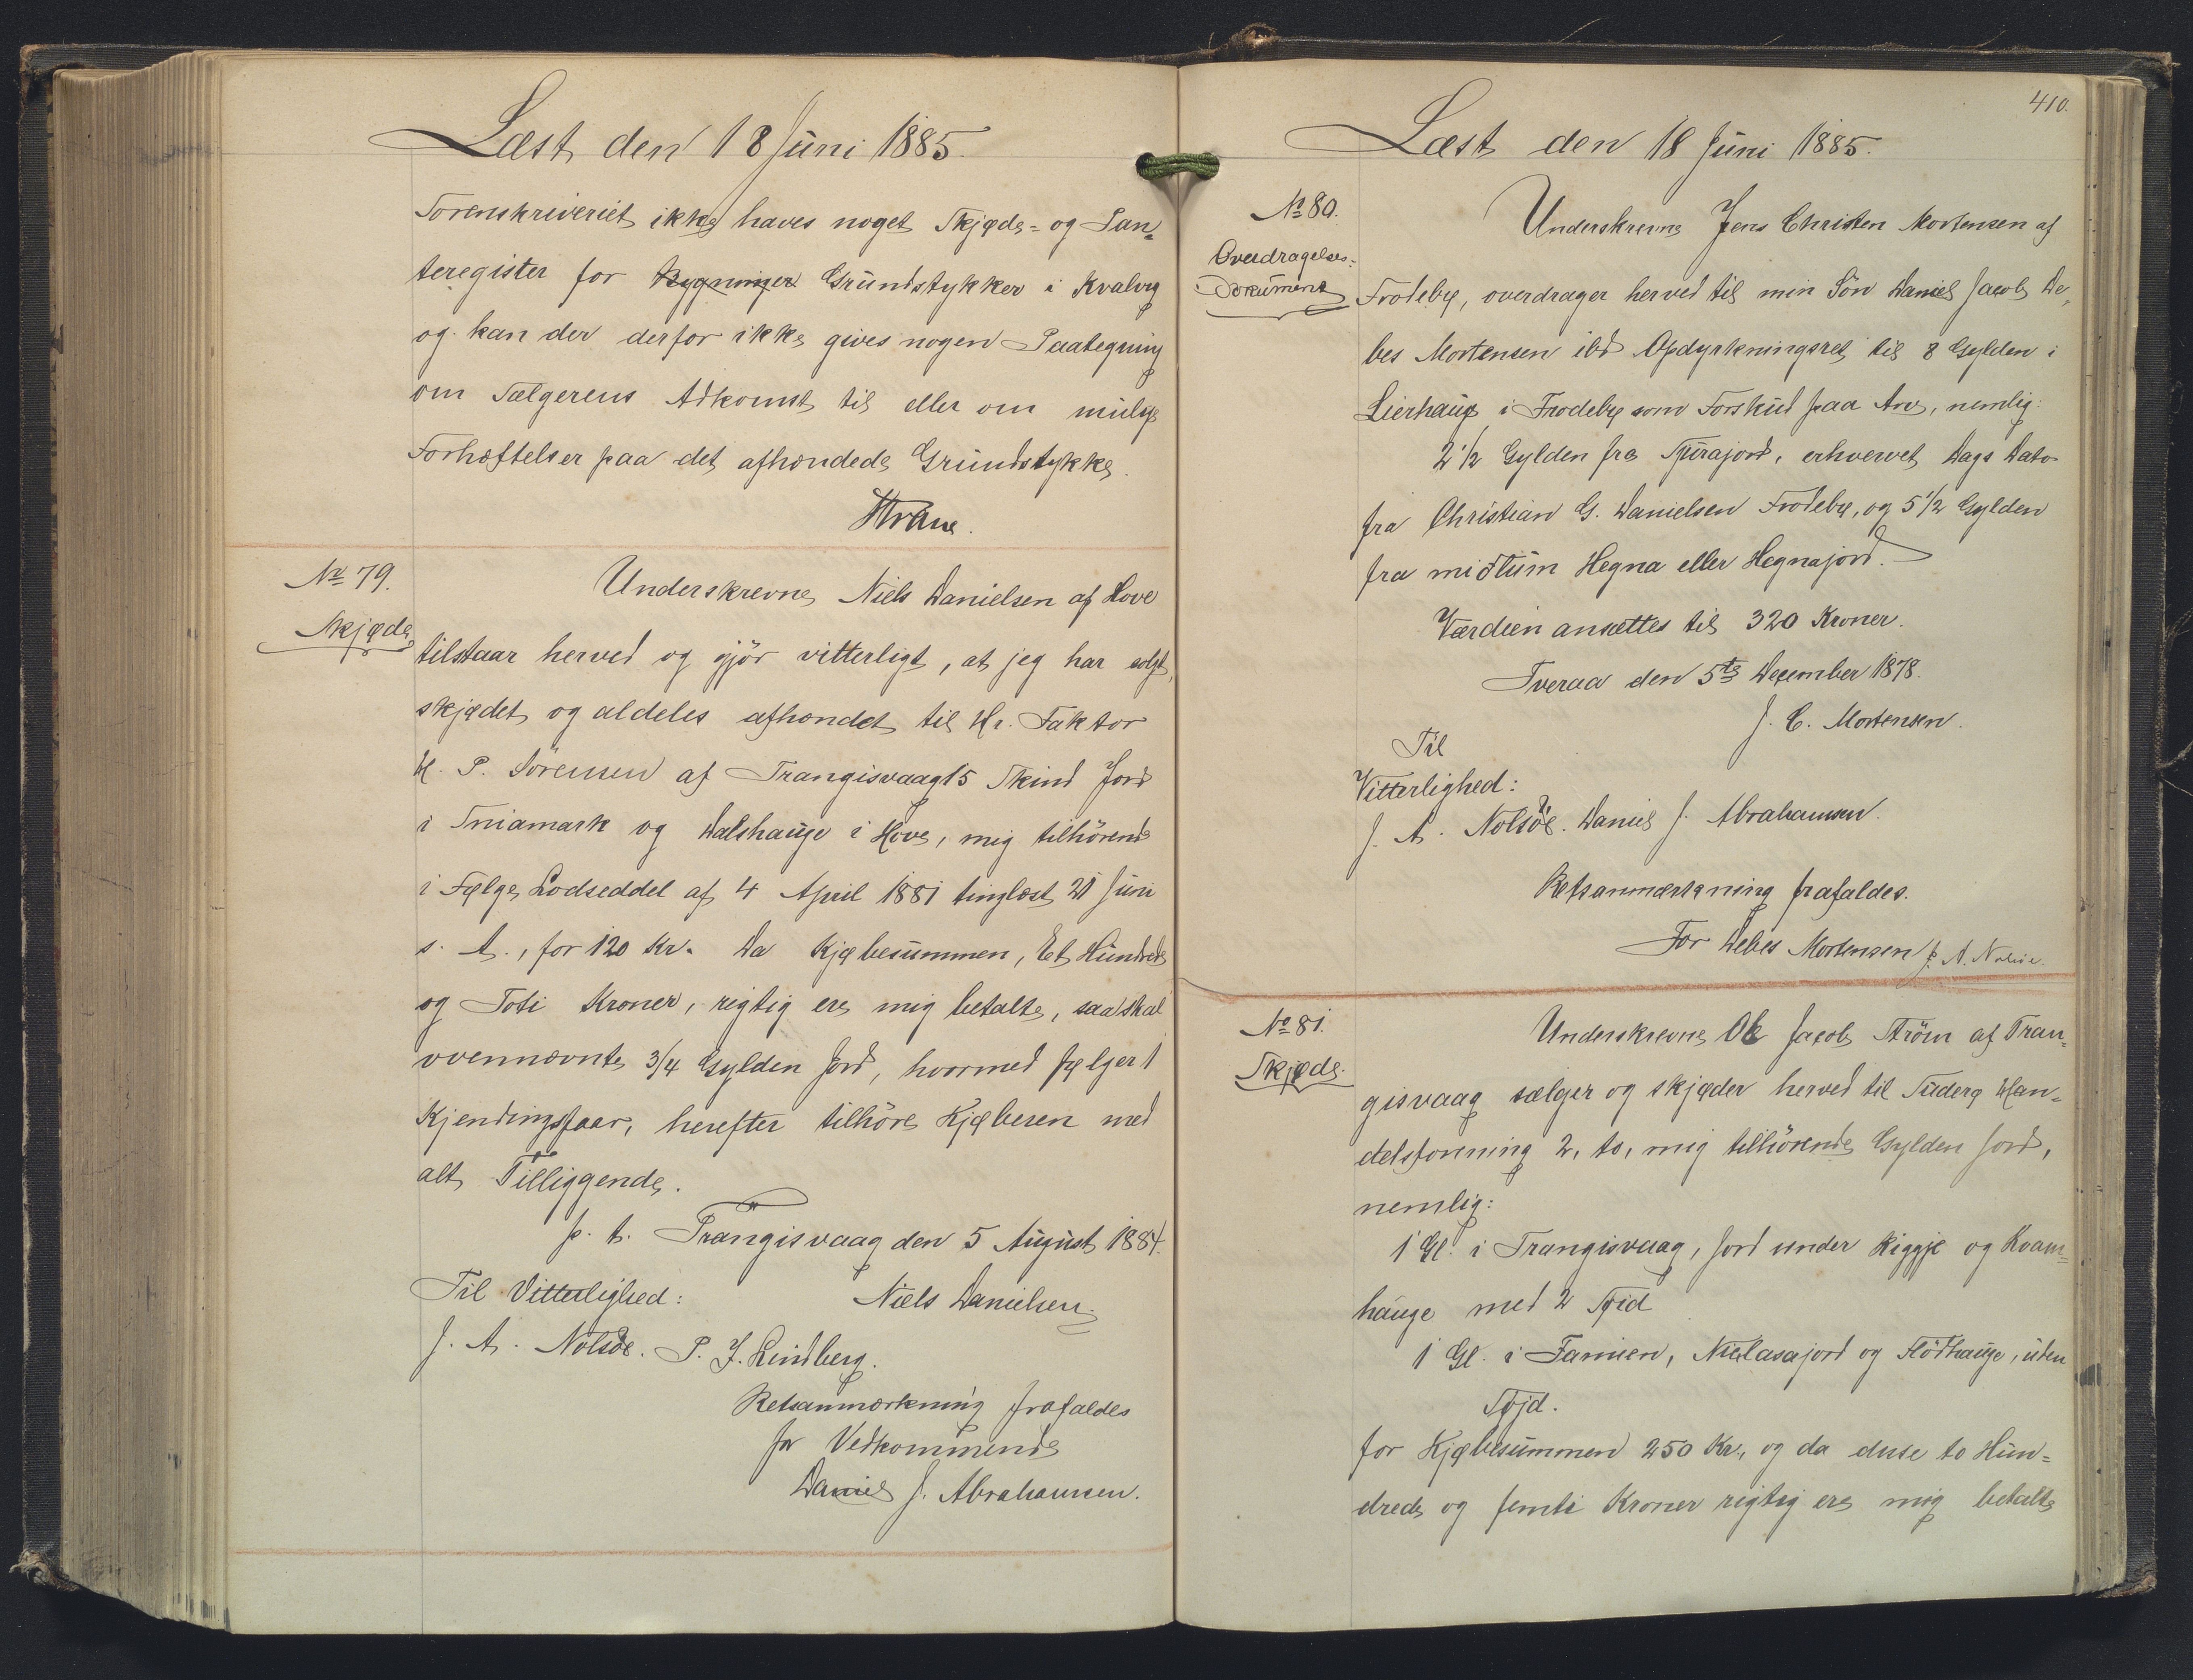 Læst den 18 Juni 1885.
Sorenskriveriet ikke haves noget Skjøde- og Pan-
teregister for Bygninger Grundstykker i Kvalvig
og kan der derfor ikke gives nogen Paategning
om Sælgerens Adkomst til eller om mulige
Forhæftelser paa det afhændede Grundstykke.
No 79.
Skjøde.
Underskrevne Niels Danielsen af Hove
tilstaar herved og gjör vitterligt, at jeg har solgt,
skjødet og aldeles afhændet til Hr. Faktor
H. P. Sörensen af Trangisvaag 15 Skind Jord
i Sniamark og Dalshauge i Hove, mig tilhörende
i Følge Lodseddel af 4 April 1881 tinglæst 21 Juni
s. A., for 120 Kr. Da Kjøbesummen, Et Hundrede
og Toti Kroner, rigtig ere mig betalte, saa skal
ovennævnte 3/4 Gylden Jord, hvormed følger 1
Kjendingsfaar, herefter tilhöre Kjøberen med
alt Tilliggende.
p. t. Trangisvaag den 5 August 1884.
Til Vitterlighed: Niels Danielsen.
J. A. Nolsöe. P. J. Lindberg.
Retsanmærkning frafaldes
for Vedkommende
Daniel J. Abrahamsen.
410.
Læst den 18 Juni 1885.
No 80.
Overdragelses-
Dokument
Underskrevne Jens Christen Mortensen af
Frodebø, overdrager herved til min Sön Daniel Jacob De-
bes Mortensen ibd Opdyrkningsret til 8 Gylden i
Lierhauge i Frodebø som Forskud paa Arv, nemlig:
2 1/2 Gylden fra Spurajord, erhvervet Dags Dato
fra Christian G. Danielsen Frodebø, og 5 1/2 Gylden
fra miðtum Hegna eller Hegnajord.
Værdien ansættes til 320 Kroner.
Tveraa den 5te December 1878.
J. C. Mortensen.
Til
Vitterlighed:
J. A. Nolsöe. Daniel J. Abrahamsen.
Retsanmærkning frafaldes.
For Debes Mortensen J. A. Nolsöe.
No 81.
Skjøde.
Underskrevne Ole Jacob Ström af Tran-
gisvaag sælger og skjøder herved til Suderø Han-
delsforening 2, to, mig tilhörende Gylden Jord,
nemlig:
1 Gl. i Trangisvaag, Jord under Riggje og Kvam-
hauge med 2 Søid
1 Gl. i Famien, Nielasajord og Flöthauge, uden
Søjd.
for Kjøbesummen 250 Kr., og da disse to Hun-
drede og femti Kroner rigtig ere mig betalte